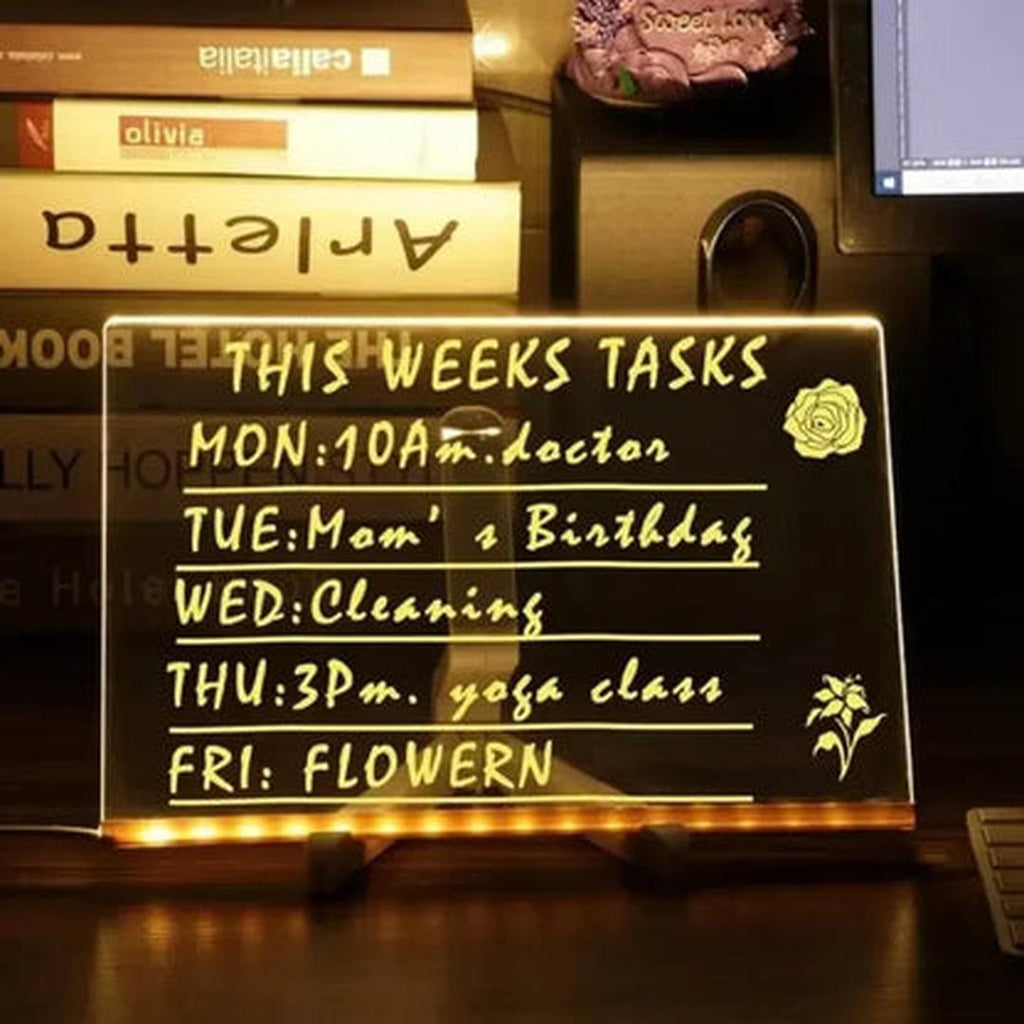 callaitalia
olivia
Arletta
THE HOTEL BOOK
LLY HOPPEN
Sweet Love
THIS WEEKS TASKS
MON:10Am.doctor
TUE:Mom's Birthday
WED:Cleaning
THU:3Pm. yoga class
FRI: FLOWERN